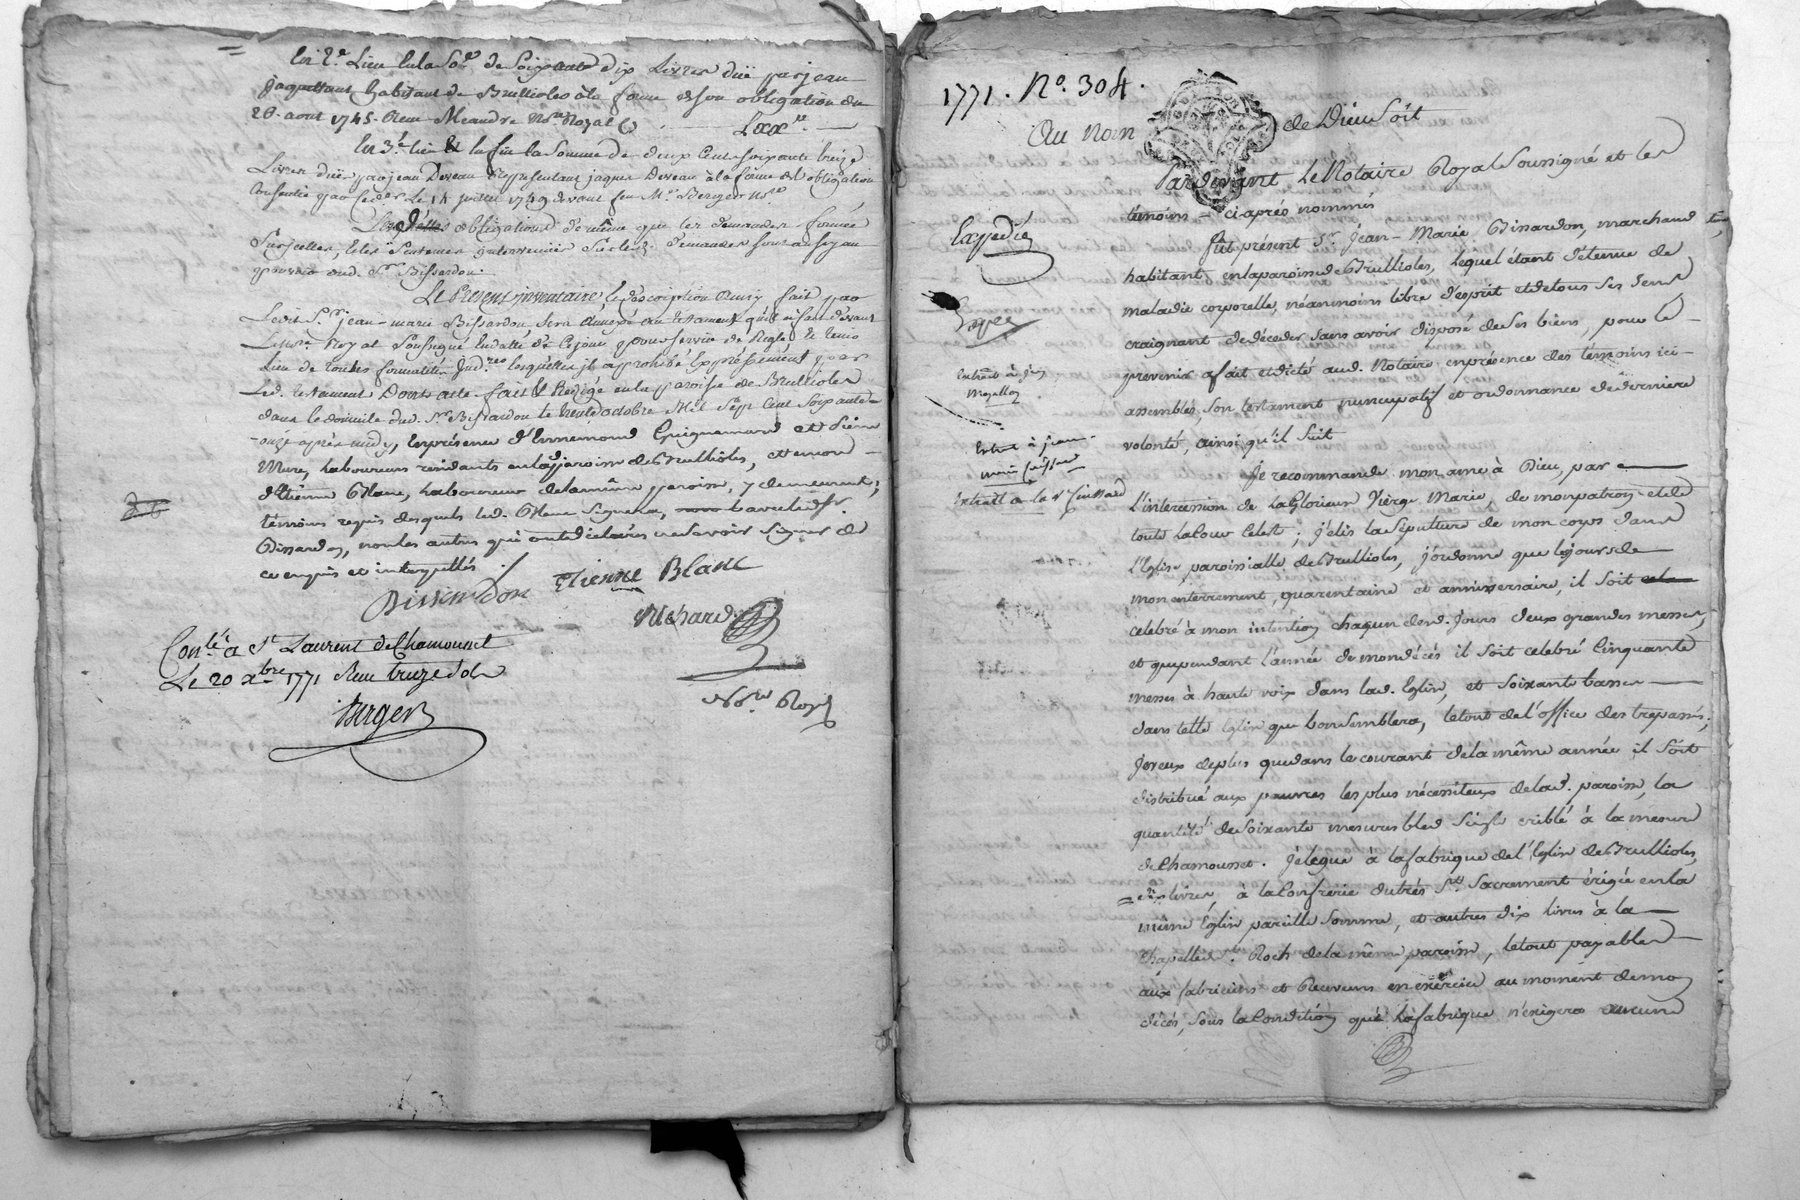 En 2e. Lieu En la Soe. de Soixante dix Livres düe par jean
jaquettant habitant de Brullioles à la forme de son obligation du
26. aout 1745. Reçu Meandre Nore. Royal Cy LXX tt.
En 3e. lieu & la fin la Somme de deux Cent soixante treize
Livres düe par jean Deveau Representant jaques Deveau à la forme de l'obligation
Consentie par le der. Le 14 juillet 1749 devant feu Me. Berger Nre.
obligations de même que les demandes formées
sur jcelles, Et les Sentences intervenües Sur lesd. demandes sont au
pouvoir dud. Sr. Bissardon.
Le Present jnventaire, & description Ainsy fait par
Ledit Sr. jean-marie Bissardon Sera Annexé au testament qu'il a fait devant
Le Nre. Royal Soussigné En datte de Ce jour pour servir de Regle & tenir
Lieu de toutes formalités Judres. lesquelles il a prohibé Expressement par
Led. testament Dont acte fait & Redigé en la paroisse de Brullioles
dans le domicile dud. Sr. Bissardon le trente octobre Mil Sept Cent Soixante-
-onze après midy, En présence d'Ennemond Guignamard et Pierre
Mure, laboureurs résidants en lad. paroisse de Brullioles, et encore
d'Etienne Blanc, laboureur de la même paroisse, y demeurant,
témoins requis desquels led. Blanc Signera, avec led. Sr.
Bissardon, non les autres qui ont déclarés ne savoir signer de
ce enquis et interpellés
Bissardon Etienne Blanc
Richard
Nre. Royal
Conlé. a St. Laurent de Chamousset
Le 20 xbre 1771 Reçu treize sols
Berger
1771. No. 304.
Au Nom de Dieu Soit
Pardevant Le Notaire Royal Soussigné et les
témoins ci-après nommés
Fut présent Sr. Jean-Marie Bissardon, marchand,
habitant en la paroisse de Brullioles, lequel étant détenu de
maladie corporelle, néanmoins libre d'esprit et de tous ses Sens
craignant de décéder sans avoir disposé de Ses biens, pour le
prévenir a fait et dicté aud. Notaire en présence des témoins ici-
assemblés, Son testament nuncupatif et ordonnance de derniere
volonté, ainsi qu'il suit
Je recommande mon ame à Dieu, par
l'intercession de la Glorieuse Vierge Marie, de mon patron, et de
toute la Cour Celeste; j'elis la Sépulture de mon corps dans
l'Eglise paroissialle de Brullioles, j'ordonne que les jours de
mon enterrement, quarentaine et anniversaire, il soit
celebré à mon intention chaqun desd. jours deux grandes messes,
et que pendant l'année de mon décés il soit celebré Cinquante
messes à haute voix dans lad. Eglise, et Soixante basses
dans telle Eglise que bon semblera, le tout de l'office des trepassés;
je veux de plus que dans le courant de la même année il Soit
distribué aux pauvres les plus nécessiteux de lad. paroisse, la
quantité de Soixante mesures bled Seigle criblé à la mesure
de Chamousset. je legue à la fabrique de l'Eglise de Brullioles,
dix livres, à la Confrerie du très St. Sacrement érigée en la
même Eglise pareille Somme, et autres dix livres à la
Chapelle St. Roch de la même paroisse, le tout payables
aux fabriciens et Receveurs en exercice au moment de mon
décés, Sous la Condition que la fabrique n'exigera aucune
Expédié
Extrait à jean
Extrait à la